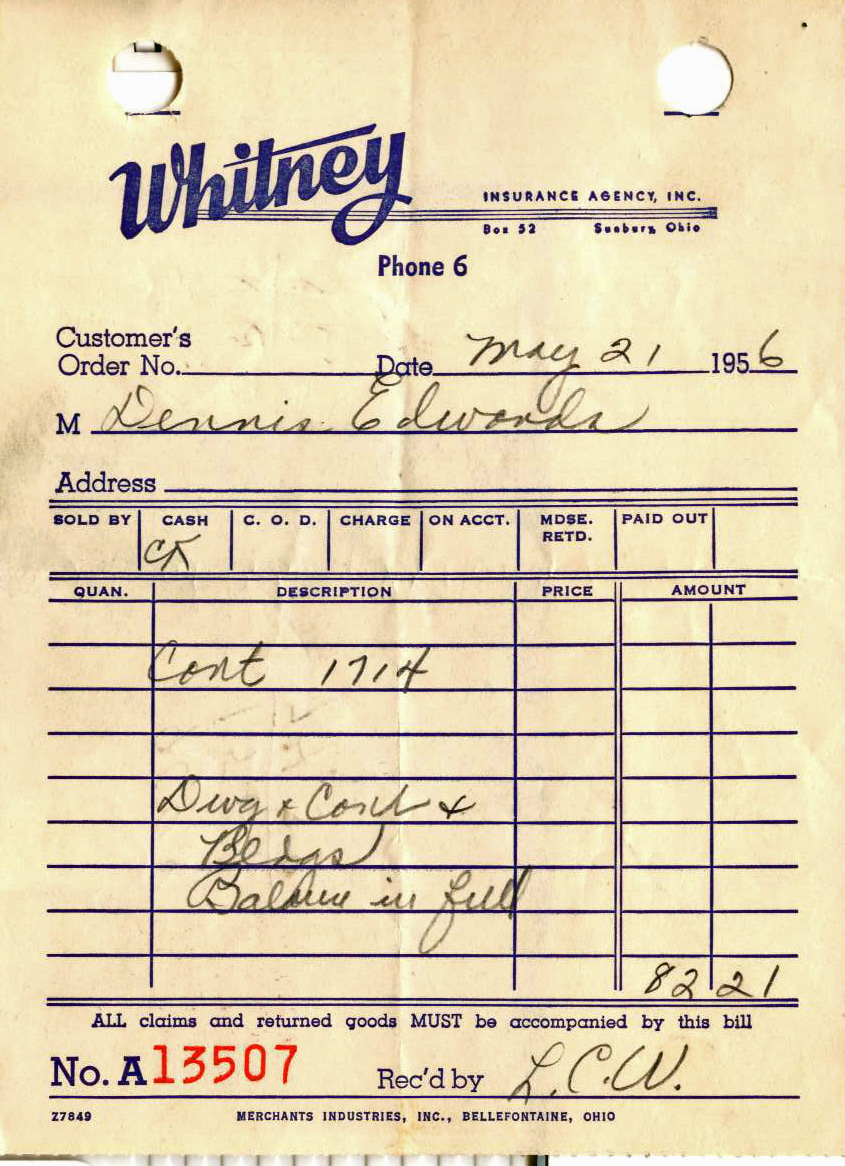 Whitney
INSURANCE AGENCY, INC.
Box 52 Sunbury, Ohio
Phone 6
Customer's
Order No. Date May 21 1956
M Dennis Edwards
Address
SOLD BY CASH C. O. D. CHARGE ON ACCT. MDSE. RETD. PAID OUT
CK
QUAN. DESCRIPTION PRICE AMOUNT
Cont 1714
Dwg & Cont &
Bldgs
Balance in full
82 21
ALL claims and returned goods MUST be accompanied by this bill
No. A13507 Rec'd by L.C.W.
Z7849 MERCHANTS INDUSTRIES, INC., BELLEFONTAINE, OHIO